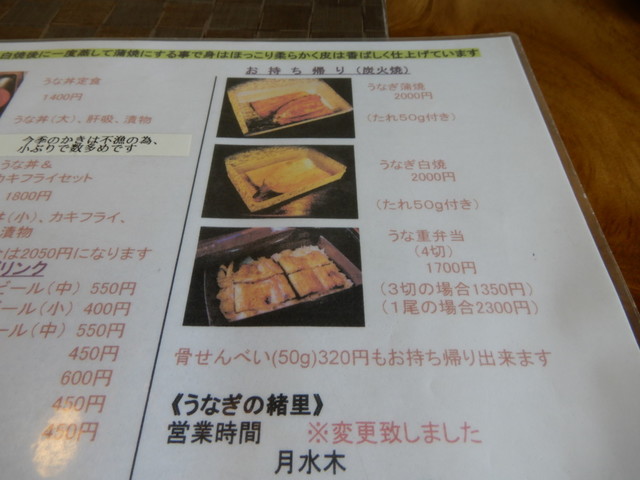 白焼後に一度蒸して蒲焼にする事で身はほっこり柔らかく皮は香ばしく仕上げています
うな丼定食
1400円
うな丼(大)、肝吸、漬物
今季のかきは不漁の為、
小ぶりで数多めです
うな丼&
カキフライセット
1800円
(小)、カキフライ、
漬物
は2050円になります
リンク
ビール(中) 550円
ビール(小) 400円
ール(中) 550円
450円
600円
450円
お持ち帰り(炭火焼)
うなぎ蒲焼
2000円
(たれ50g付き)
うなぎ白焼
2000円
(たれ50g付き)
うな重弁当
(4切)
1700円
(3切の場合1350円)
(1尾の場合2300円)
骨せんべい(50g)320円もお持ち帰り出来ます
《うなぎの緒里》
営業時間 ※変更致しました
月水木